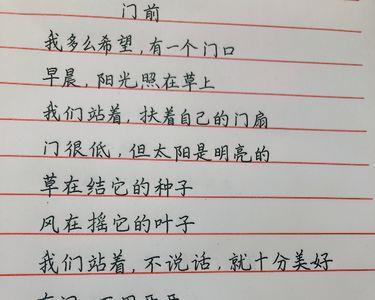 门前
我多么希望，有一个门口
早晨，阳光照在草上
我们站着，扶着自己的门扇
门很低，但太阳是明亮的
草在结它的种子
风在摇它的叶子
我们站着，不说话，就十分美好